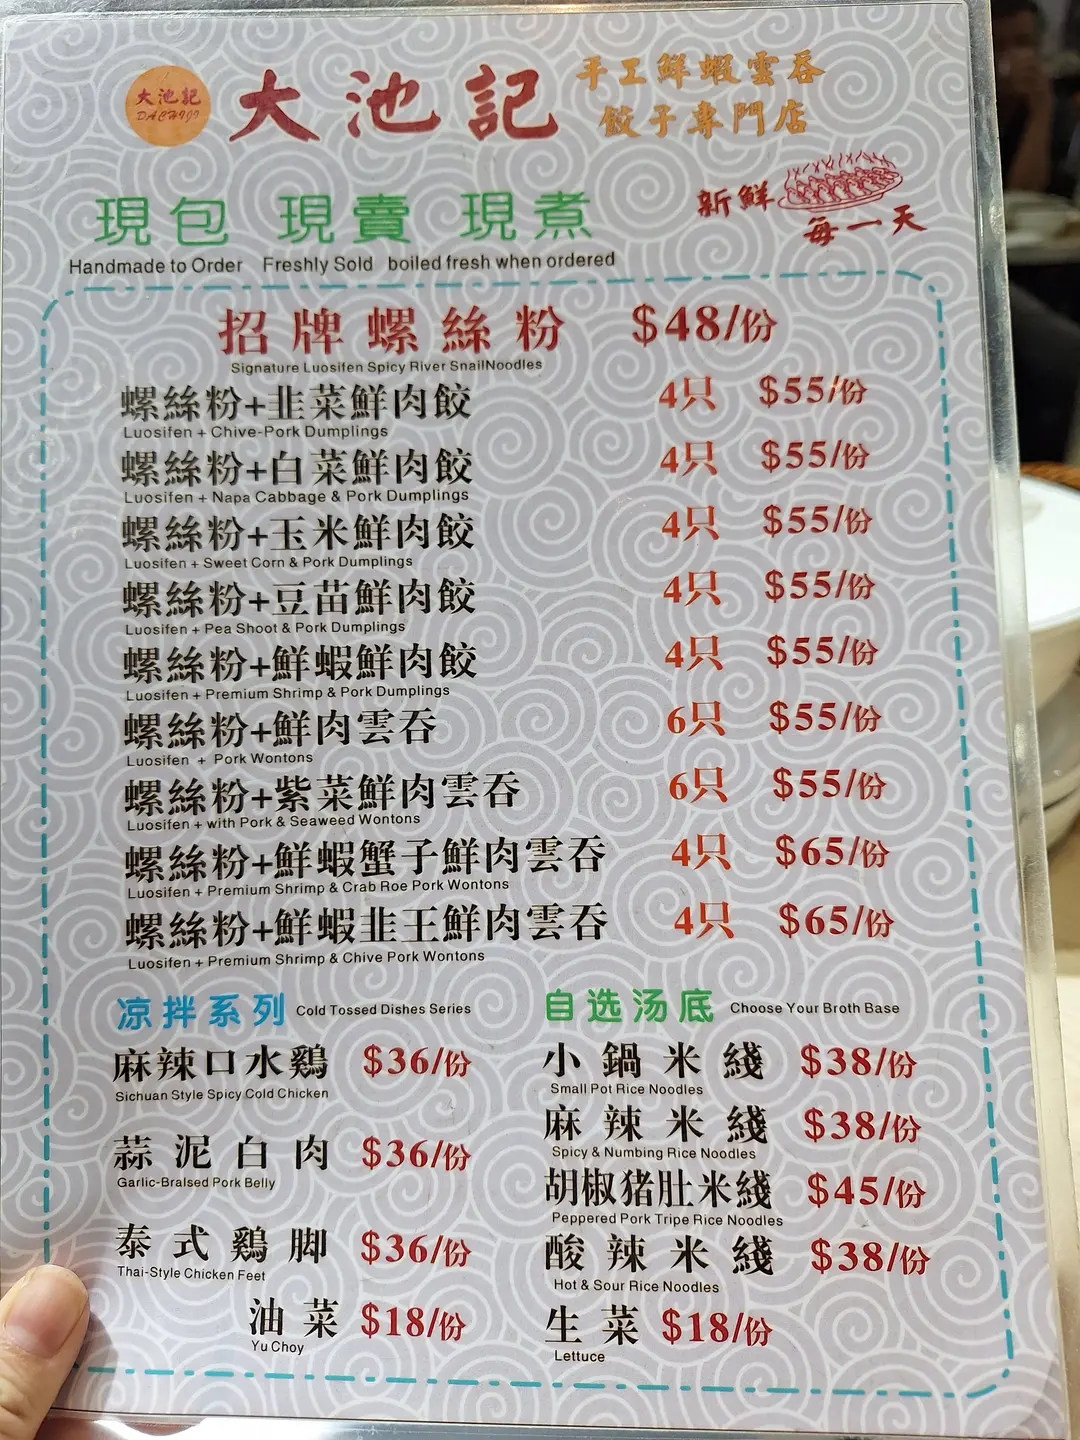 大池記
DACHIJI
大池記
手工鮮蝦雲吞
餃子專門店
現包 現賣 現煮
Handmade to Order Freshly Sold boiled fresh when ordered
新鮮
每一天
招牌螺絲粉 $48/份
Signature Luosifen Spicy River SnailNoodles
螺絲粉+韭菜鮮肉餃 4只 $55/份
Luosifen + Chive-Pork Dumplings
螺絲粉+白菜鮮肉餃 4只 $55/份
Luosifen + Napa Cabbage & Pork Dumplings
螺絲粉+玉米鮮肉餃 4只 $55/份
Luosifen + Sweet Corn & Pork Dumplings
螺絲粉+豆苗鮮肉餃 4只 $55/份
Luosifen + Pea Shoot & Pork Dumplings
螺絲粉+鮮蝦鮮肉餃 4只 $55/份
Luosifen + Premium Shrimp & Pork Dumplings
螺絲粉+鮮肉雲吞 6只 $55/份
Luosifen + Pork Wontons
螺絲粉+紫菜鮮肉雲吞 6只 $55/份
Luosifen + with Pork & Seaweed Wontons
螺絲粉+鮮蝦蟹子鮮肉雲吞 4只 $65/份
Luosifen + Premium Shrimp & Crab Roe Pork Wontons
螺絲粉+鮮蝦韭王鮮肉雲吞 4只 $65/份
Luosifen + Premium Shrimp & Chive Pork Wontons
凉拌系列 Cold Tossed Dishes Series
麻辣口水鷄 $36/份
Sichuan Style Spicy Cold Chicken
蒜泥白肉 $36/份
Garlic-Bralsed Pork Belly
泰式鷄脚 $36/份
Thai-Style Chicken Feet
油菜 $18/份
Yu Choy
自选汤底 Choose Your Broth Base
小鍋米綫 $38/份
Small Pot Rice Noodles
麻辣米綫 $38/份
Spicy & Numbing Rice Noodles
胡椒猪肚米綫 $45/份
Peppered Pork Tripe Rice Noodles
酸辣米綫 $38/份
Hot & Sour Rice Noodles
生菜 $18/份
Lettuce